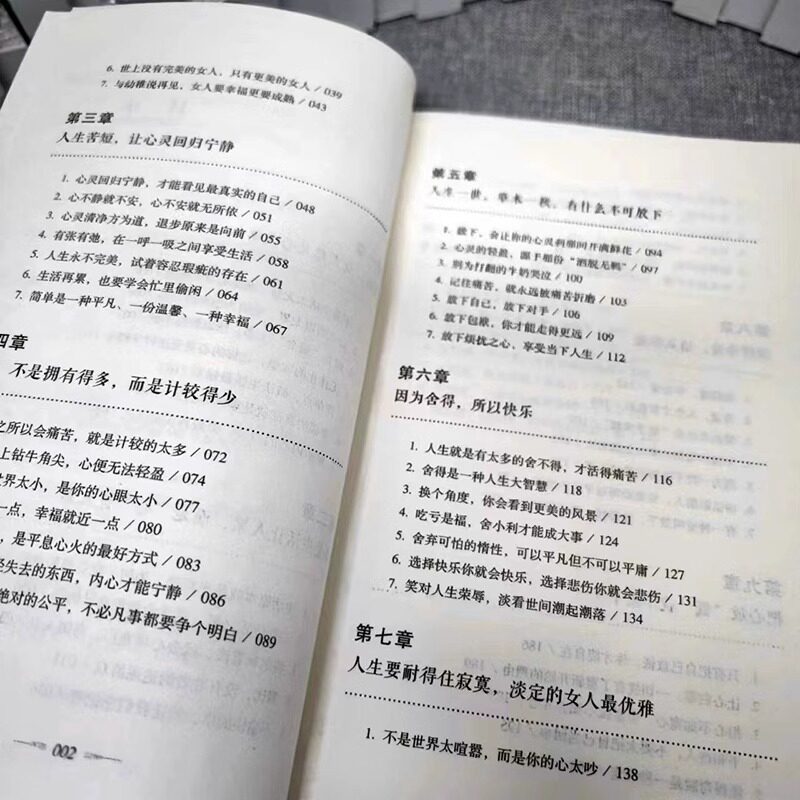 6. 世上没有完美的女人，只有更美的女人 / 039
7. 与幼稚说再见，女人要幸福更要成熟 / 043
第三章
人生苦短，让心灵回归宁静
1. 心灵回归宁静，才能看见最真实的自己 / 048
2. 心不静就不安，心不安就无所依 / 051
3. 心灵清净方为道，退步原来是向前 / 055
4. 有张有弛，在一呼一吸之间享受生活 / 058
5. 人生永不完美，试着容忍瑕疵的存在 / 061
6. 生活再累，也要学会忙里偷闲 / 064
7. 简单是一种平凡、一份温馨、一种幸福 / 067
四章
不是拥有得多，而是计较得少
之所以会痛苦，就是计较的太多 / 072
上钻牛角尖，心便无法轻盈 / 074
世界太小，是你的心眼太小 / 077
一点，幸福就近一点 / 080
，是平息心火的最好方式 / 083
失去的东西，内心才能宁静 / 086
绝对的公平，不必凡事都要争个明白 / 089
002
第五章
人生一世，草木一秋，有什么不可放下
1. 放下，会让你的心灵刹那间开满鲜花 / 094
2. 心灵的轻盈，源于那份“洒脱无羁” / 097
3. 别为打翻的牛奶哭泣 / 100
4. 记住痛苦，就永远被痛苦折磨 / 103
5. 放下自己，放下对手 / 106
6. 放下包袱，你才能走得更远 / 109
7. 放下烦忧之心，享受当下人生 / 112
第六章
因为舍得，所以快乐
1. 人生就是有太多的舍不得，才活得痛苦 / 116
2. 舍得是一种人生大智慧 / 118
3. 换个角度，你会看到更美的风景 / 121
4. 吃亏是福，舍小利才能成大事 / 124
5. 舍弃可怕的惰性，可以平凡但不可以平庸 / 127
6. 选择快乐你就会快乐，选择悲伤你就会悲伤 / 131
7. 笑对人生荣辱，淡看世间潮起潮落 / 134
第七章
人生要耐得住寂寞，淡定的女人最优雅
1. 不是世界太喧嚣，而是你的心太吵 / 138